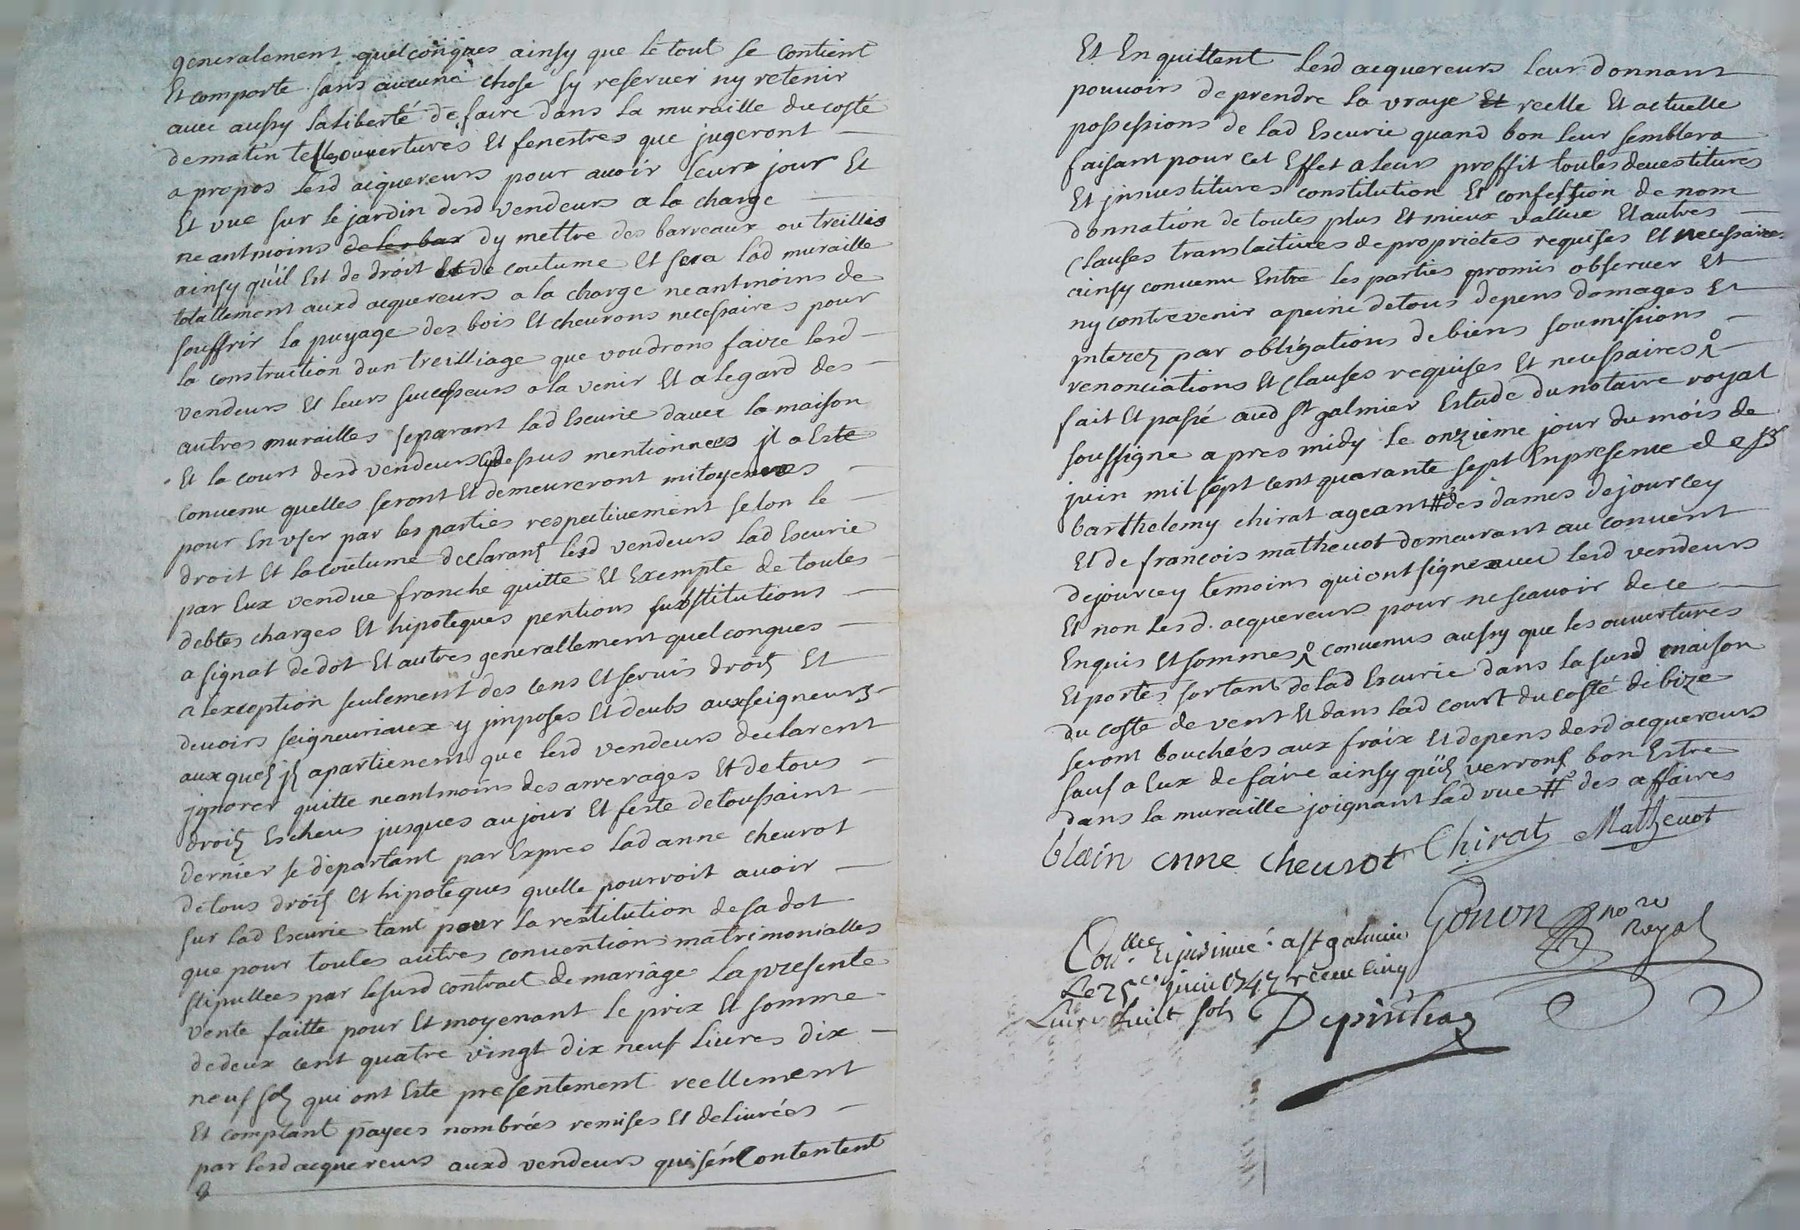 generalement quelconques ainsy que le tout se contient
Et comporte sans aucune chose sy reserver ny retenir
avec aussy la liberté de faire dans la muraille du costé
de matin telles ouvertures Et fenestres que jugeront
a propos lesd acquereurs pour avoir leurs jour Et
Et vue sur le jardin desd vendeurs a la charge
neantmoins de les bar dy mettre des barreaux ou treillis
ainsy quil Est de droit Et de coutume Et sera lad muraille
totallement auxd acquereurs a la charge neantmoins de
souffrir la puyage des bois Et chevrons necessaires pour
la construction dun treilliage que voudrons faire lesd
vendeurs Et leurs successeurs a la venir Et a legard des
autres murailles separant lad Escurie davec la maison
Et la court desd vendeurs cy dessus mentionnées jl a Este
convenu quelles seront Et demeureront mitoyennes
pour En user par les parties respectivement selon le
droit Et la coutume declarans lesd vendeurs lad Escurie
par Eux vendue franche quitte Et Exempte de toutes
debtes charges Et hipoteques pentions substitutions
asignat de dot Et autres generallement quelconques
a lexception seulement des cens Et servis droits Et
devoirs seigneuriaux y jmposes Et deubs aux seigneurs
auxquels jls apartienent que lesd vendeurs declarent
jgnorer quitte neantmoins des arrerages Et de tous
droits Escheus jusques au jour Et feste de toussaint
dernier se departant par Expres lad anne chevrot
de tous droits Et hipoteques quelle pourroit avoir
sur lad Escurie tant pour la restitution de sa dot
que pour toutes autres conventions matrimonialles
stipullees par le susd contract de mariage La presente
vente faitte pour Et moyenant le prix Et somme
de deux cent quatre vingt dix neuf Livres dix
neuf sols qui ont Este presentement reellement
Et comptant payees nombrées remises Et delivrées
par lesd acquereurs auxd vendeurs qui sén Contentent
Et En quittent lesd acquereurs leur donnant
pouvoirs de prendre la vraye Et reelle Et actuelle
possessions de lad Escurie quand bon leur semblera
faisant pour cet Effet a leurs proffit toutes devestitures
Et jnvestitures constitution Et confession de nom
donnation de toutes plus Et mieux vallue Et autres
Clauses translatives de proprietes requises Et necessaires
ainsy convenu Entre les parties promis observer Et
ny contrevenir a peine de tous depens domages Et
jnterez par obligations de biens soumissions
renonciations Et Clauses requises Et necessaires
fait Et passé aud St galmier Estude du notaire royal
soussigne apres midy le onzieme jour du mois de
juin mil sept cent quarante sept En presence de Sr
barthelemy chirat ageant # des dames de jourcey
Et de francois mathevot demeurant au convent
de jourcey temoins qui ont signe avec lesd vendeurs
Et non lesd. acquereurs pour ne scavoir de ce
Enquis Et sommes convenus aussy que les ouvertures
Et portes sortant de lad Escurie dans la susd maison
du costé de vent Et dans lad court du costé de bize
seront bouchées aux fraix Et depens desd acquereurs
sauf a Eux de faire ainsy quils verrons bon Estre
dans la muraille joignant lad rue # des affaires
blain anne chevrot Chirat Mathevot
Gonon no re royal
Con.lle Et jnsinué a St galmier
Le 25e juin 1747 receu cinq
Livres huit sols Depinhac